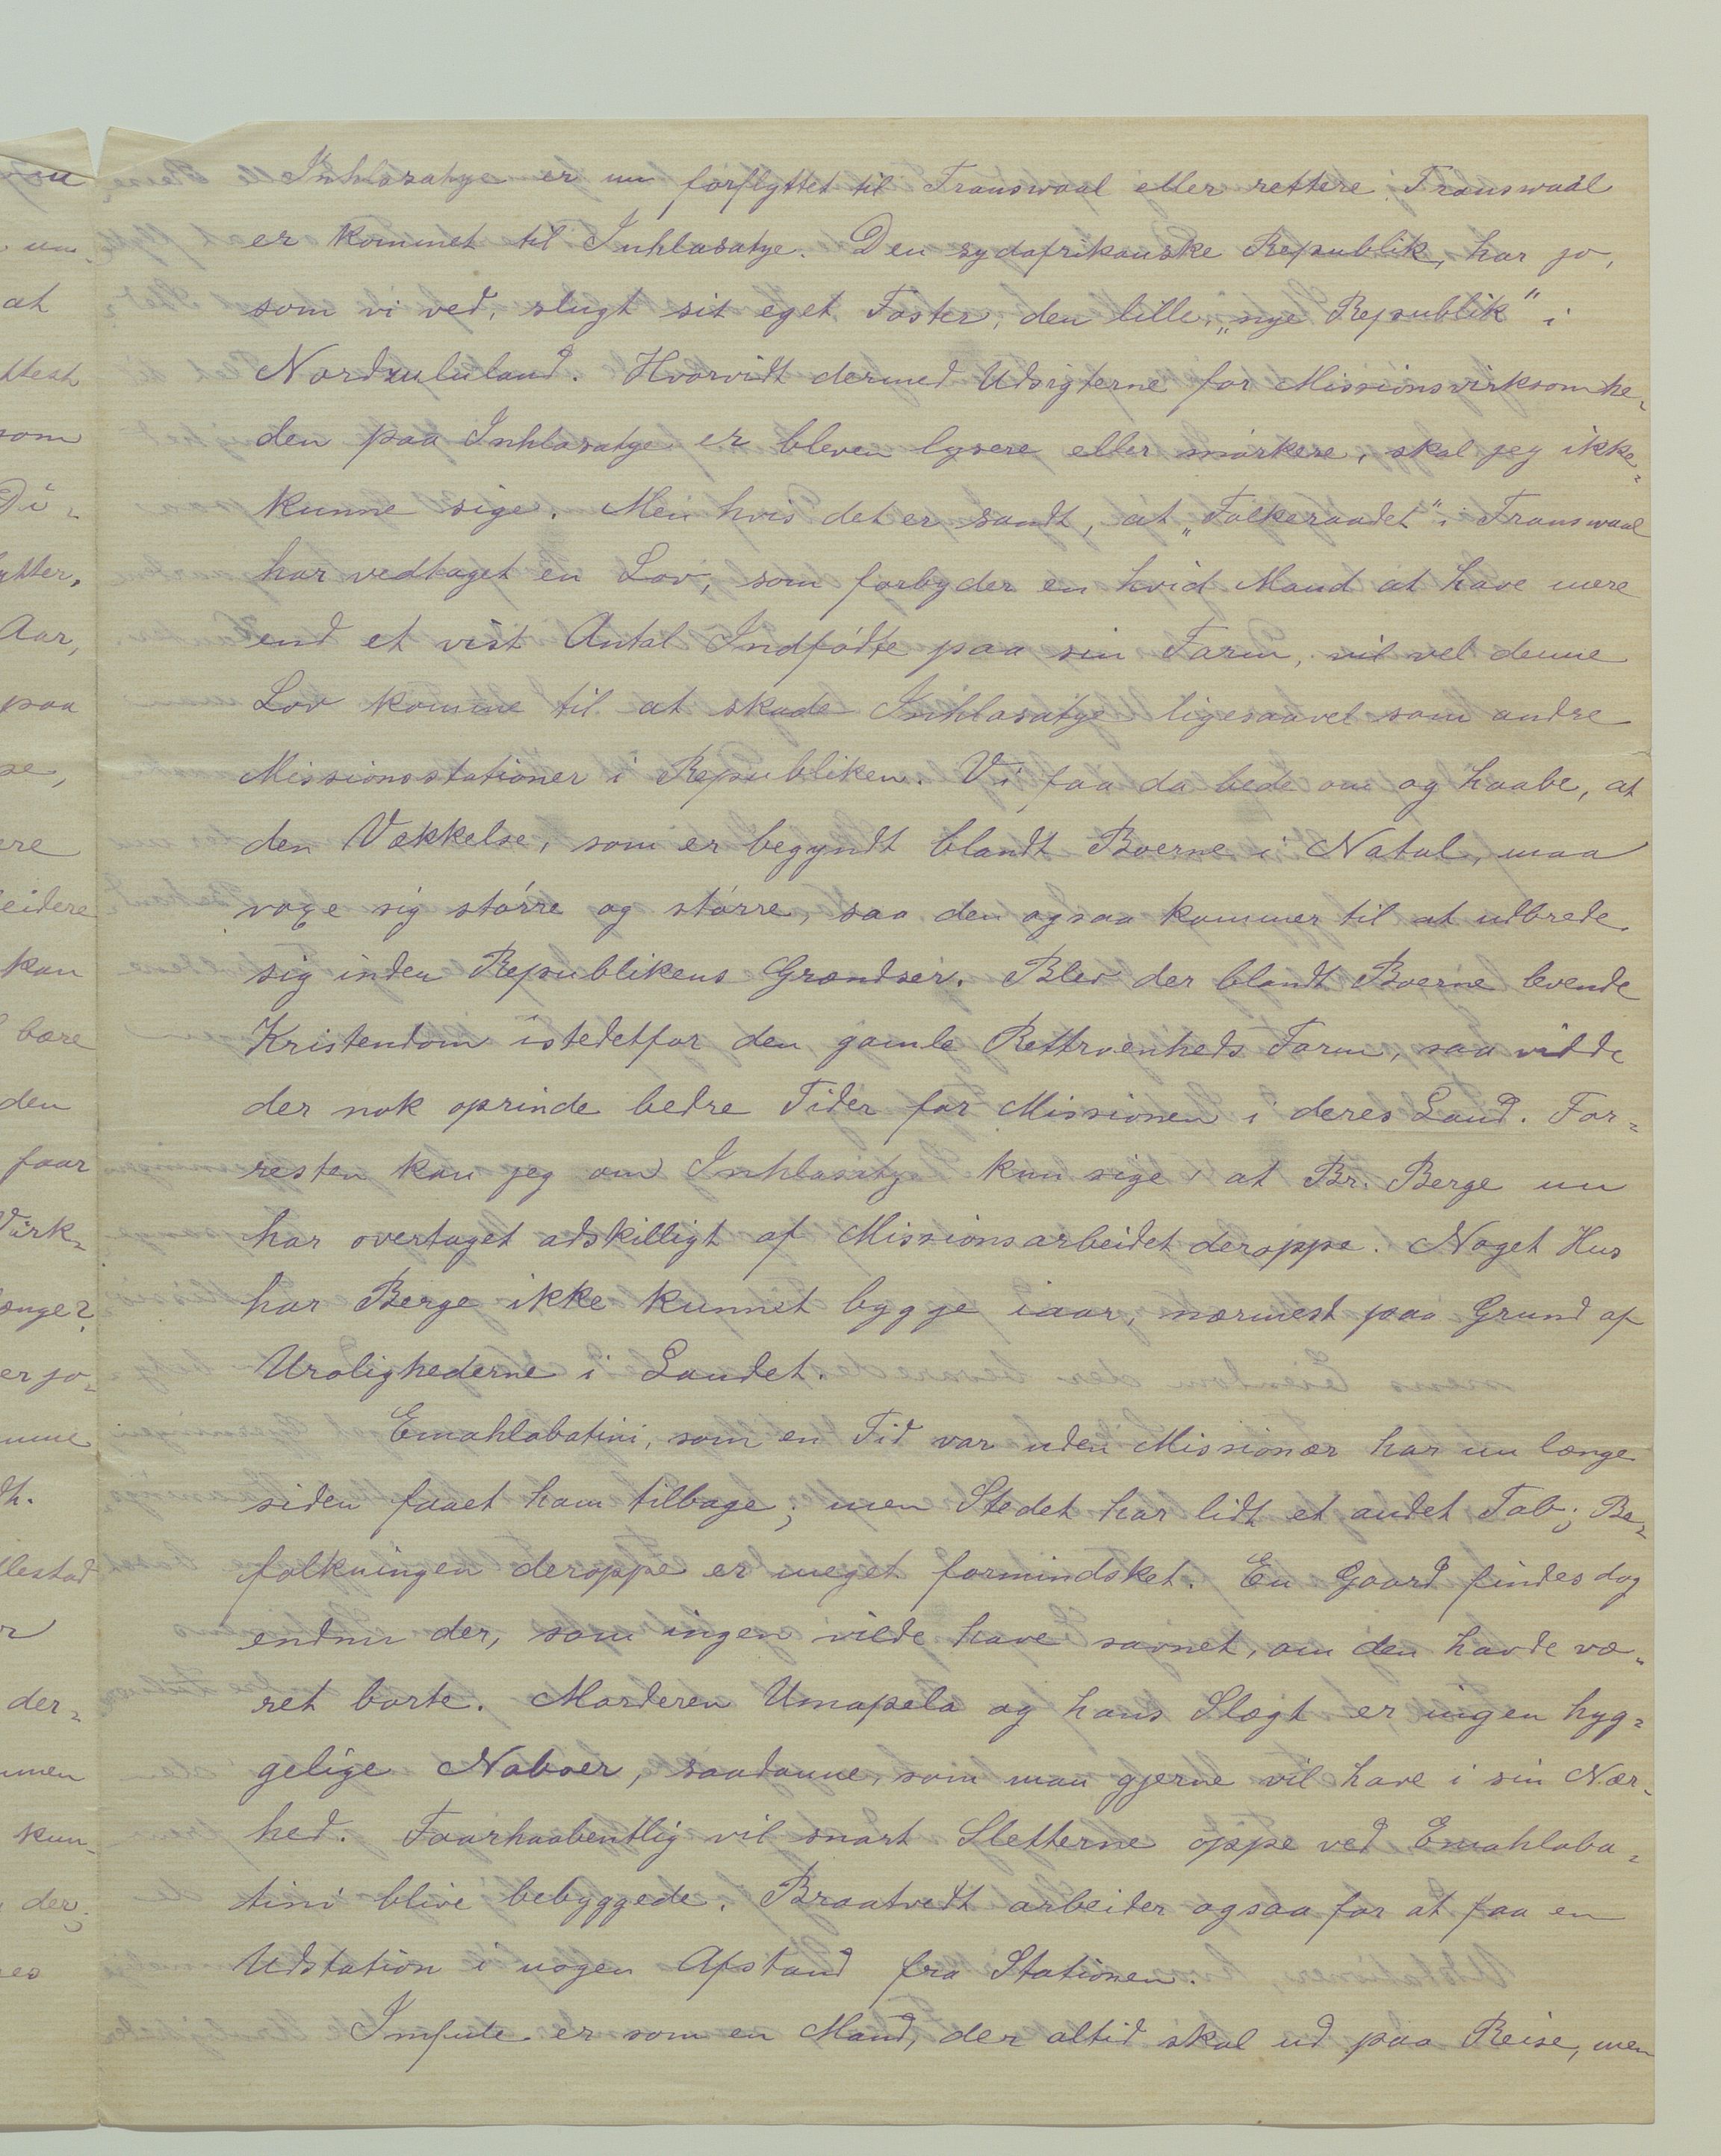 Inhlasatye er nu forflyttet til Transwaal eller rettere Transwaal
er kommet til Inhlasatye. Den sydafrikanske Republik, har jo,
som vi ved, slugt sit eget Foster, den lille, „nye Republik" i
Nordzululand. Hvorvidt dermed Udsigterne for Missionsvirksomhe-
den paa Inhlasatye er bleven lysere eller mörkere, skal jeg ikke
kunne sige. Men hvis det er sandt, at „Folkeraadet" i Transwaal
har vedtaget en Lov, som forbyder en hvid Mand at have mere
end et vist Antal Indfödte paa sin Farm, vil vel denne
Lov komme til at skade Inhlasatye ligesaavel som andre
Missionsstationer i Republiken. Vi faa da bede om og haabe, at
den Vækkelse, som er begyndt blandt Boerne i Natal, maa
voxe sig större og större, saa den ogsaa kommer til at udbrede
sig inden Republikens Grændser. Blev der blandt Boerne levende
Kristendom istedetfor den gamle Rettroenheds Form, saa vilde
der nok oprinde bedre Tider for Missionen i deres Land. For-
resten kan jeg om Inhlasatye kun sige, at Br. Berge nu
har overtaget adskilligt af Missionsarbeidet deroppe. Noget Hus
har Berge ikke kunnet bygge iaar, nærmest paa Grund af
Urolighederne i Landet.
Emahlabatini, som en Tid var uden Missionær har nu længe
siden faaet ham tilbage; men Stedet har lidt et andet Tab; Be-
folkningen deroppe er meget formindsket. En Gaard findes dog
endnu der, som ingen vilde have savnet, om den havde væ-
ret borte. Morderen Umapela og hans Slægt er ingen hyg-
gelige Naboer, saadanne, som man gjerne vil have i sin Nær-
hed. Foorhaabentlig vil snart Sletterne oppe ved Emahlaba-
tini blive bebyggede. Braatvedt arbeider ogsaa for at faa en
Udstation i nogen Afstand fra Stationen.
Imfule er som en Mand, der altid skal ud paa Reise, men